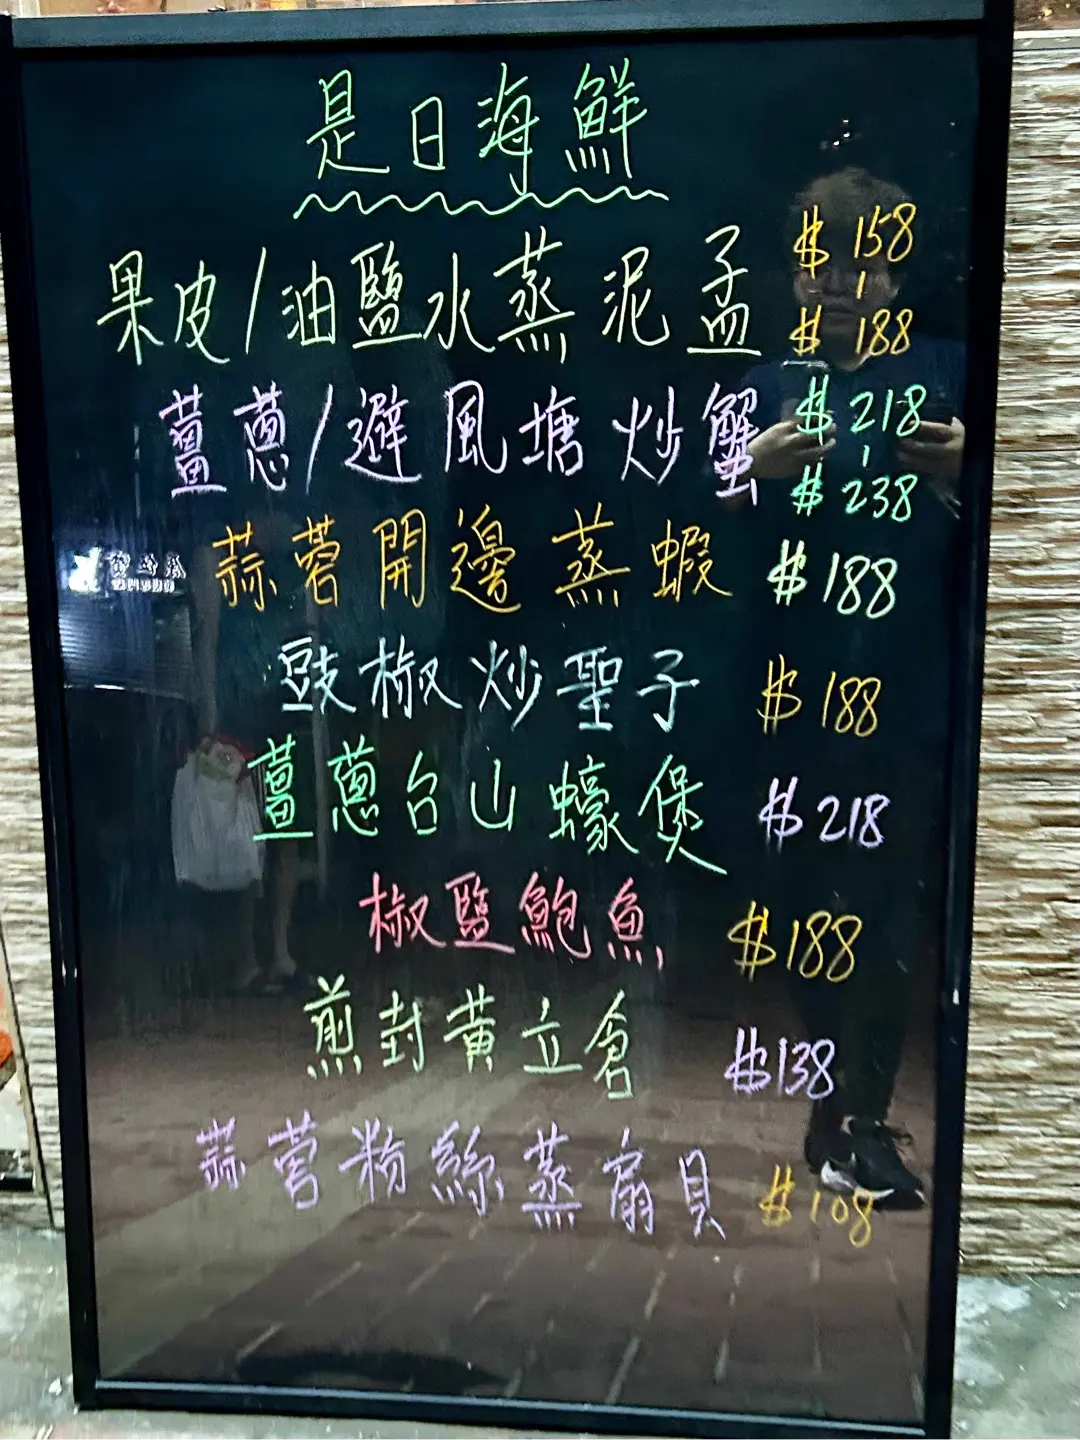 是日海鮮
果皮/油鹽水蒸泥孟 $158-$188
薑蔥/避風塘炒蟹 $218-$238
蒜蓉開邊蒸蝦 $188
豉椒炒聖子 $188
薑蔥台山蠔煲 $218
椒鹽鮑魚 $188
煎封黃立倉 $138
蒜蓉粉絲蒸扇貝 $108